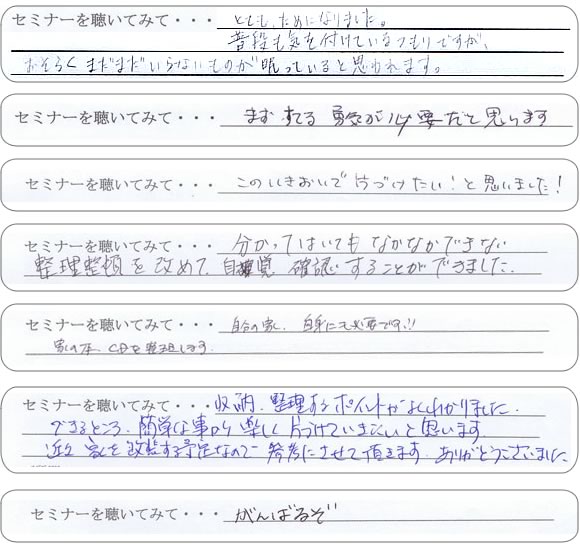 セミナーを聴いてみて・・・ とても、ためになりました。
普段も気を付けているつもりですが、
おそらくまだまだいらないものが眠っていると思われます。
セミナーを聴いてみて・・・ まず すてる 勇気が必要だと思います
セミナーを聴いてみて・・・ このいきおいで片づけたい!と思いました!
セミナーを聴いてみて・・・ 分かってはいても なかなかできない
整理整頓を改めて、自覚 確認することができました。
セミナーを聴いてみて・・・ 自分の家、自身にも必要です!!
家の本、CDを整理します。
セミナーを聴いてみて・・・ 収納、整理するポイントがよくわかりました。
できるところ、簡単な事から楽しく片づけていきたいと思います。
近々 家を改装する予定なので 参考にさせて頂きます。ありがとうございました
セミナーを聴いてみて・・・ がんばるぞ